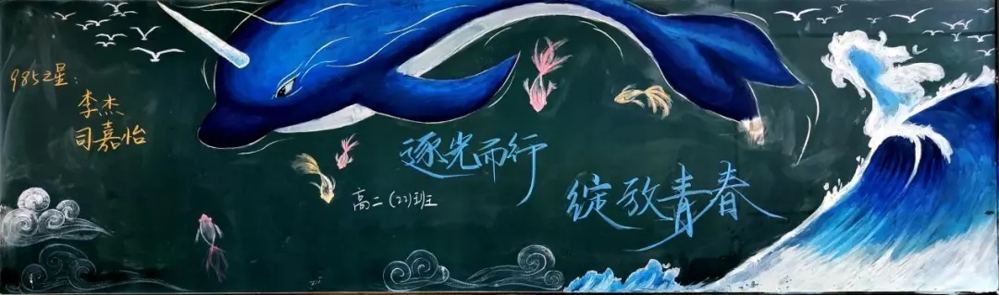 985之星：
李杰
司嘉怡
逐光而行
绽放青春
高二(22)班